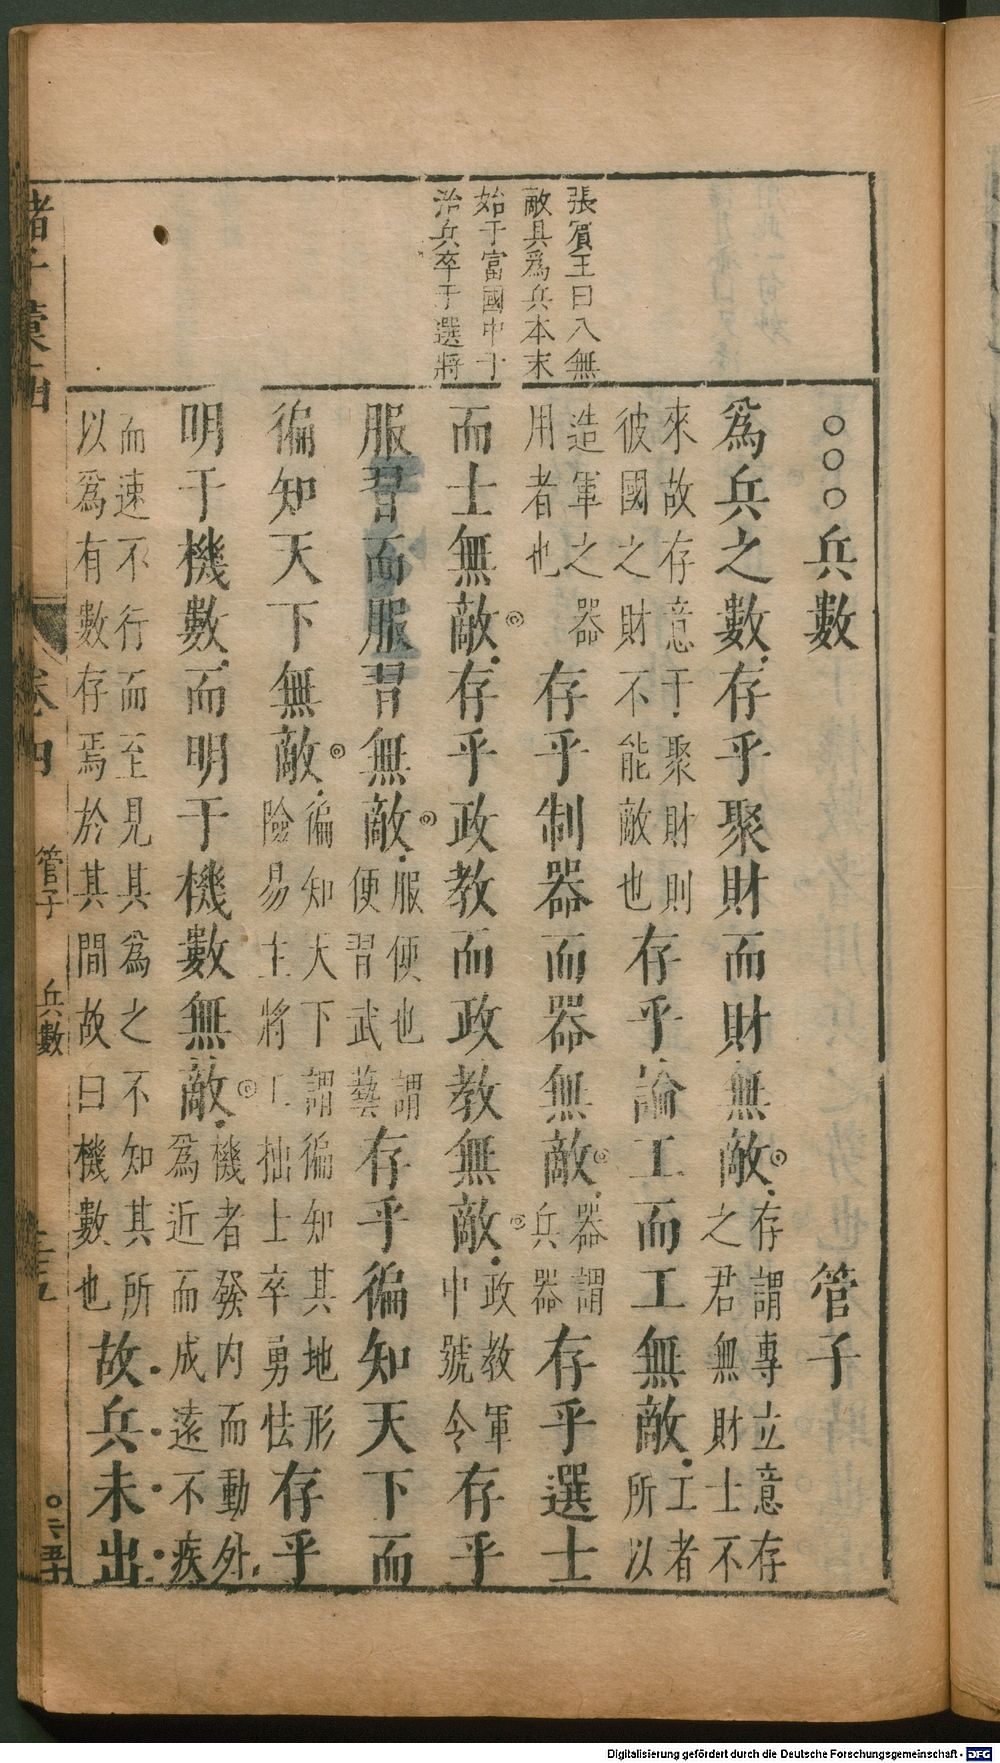 張賓王曰八無
敵具爲兵本末
始于富國中于
治兵卒于選將
○○○兵數 管子
爲兵之數存乎聚財而財無敵◎存謂專立意存之君無財士不
來故存意于聚財則彼國之財不能敵也存乎論工而工無敵工者所以
造軍之器用者也存乎制器而器無敵◎器謂兵器存乎選士
而士無敵◎存乎政教而政教無敵◎政教軍中號令存乎
服習而服習無敵◎服便也謂便習武藝存乎徧知天下而
徧知天下無敵◎徧知天下謂徧知其地形險易主將工拙上卒勇怯存乎
明于機數而明于機數無敵◎機者發内而動外爲近而成遠不疾
而速不行而至見其爲之不知其所以爲有數存焉於其間故曰機數也故兵未出
諸子彙函 卷四 管子 兵數
Digitalisierung gefördert durch die Deutsche Forschungsgemeinschaft - DFG